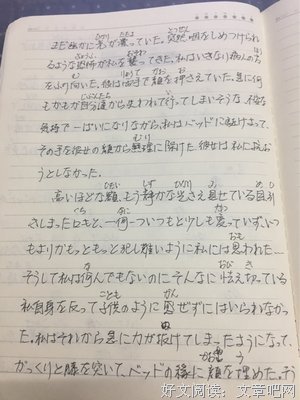 まだ幽かに光が漂っていた。突然咽をしめつけられ
るような恐怖が私を襲ってきた。私はいきなり病人の方
をふり向いた。彼女は両手で顔を押さえていた。急に何
もかもが自分達から失われて行ってしまいそうな、不安な
気持で一ぱいになりながら、私はベッドに駈けよって、
その手を彼女の顔から無理に除けた。彼女は私に抗お
うとしなかった。
高いほどな額、もう静かな光さえ見せている目、引
きしまった口もと、一何一ついつもと少しも変っていず、いつ
もよりかもっともっと犯し難いように私には思われた…
そうして私は何んでもないのにそんなに怯え切っている
私自身を反って子供のように感ぜずにはいられなかっ
た。私はそれから急に力が抜けてしまったようになって、
がっくりと膝を突いて、ベッドの縁に顔を埋めた。そう
好文阅读：文章吧网